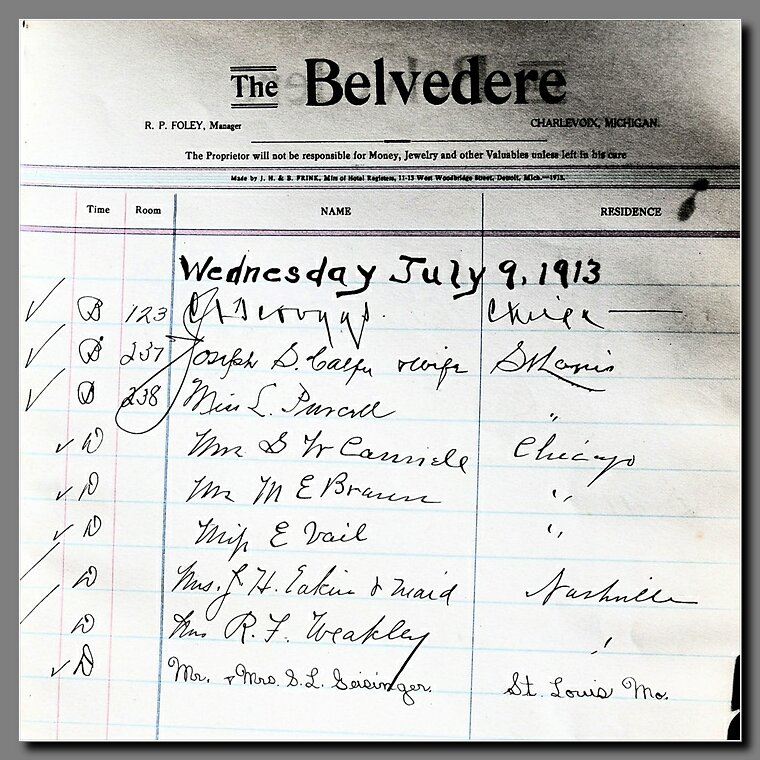 The Belvedere
R. P. FOLEY, Manager CHARLEVOIX, MICHIGAN.
The Proprietor will not be responsible for Money, Jewelry and other Valuables unless left in his care
Made by J. H. & B. FRINK, Mfrs of Hotel Registers, 11-13 West Woodbridge Street, Detroit, Mich.—1913.
Time Room NAME RESIDENCE
Wednesday July 9, 1913
B 123
B 237 Joseph S. & wife St Louis
B 238 Miss L. Purcell "
D Mrs S W Chicago
D M E Braun "
D Miss E Vail "
D Mrs. J. H. Eakin & maid Nashville
D Mrs R. F. Weakley "
D Mr. & Mrs. S. L. Geisinger. St. Louis Mo.